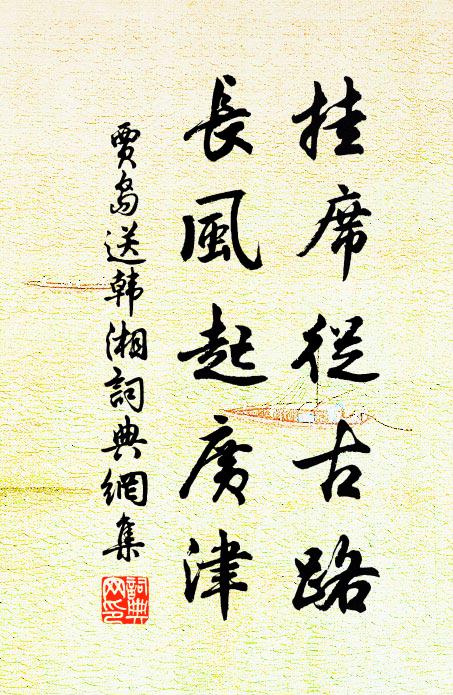 挂席從古路
長風起廣津
賈島送韩湘詞典網集
詞典
网印